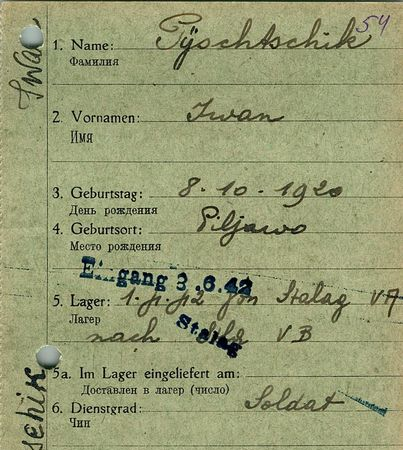 54
1. Name: Pÿschtschik
Фамилия
2. Vornamen: Iwan
Имя
3. Geburtstag: 8. 10. 1920
День рождения
4. Geburtsort: Piljawo
Место рождения
Eingang 3.6.42
5. Lager: Stalag VA
Лагер
Stalag
nach VB
5a. Im Lager eingeliefert am:
Доставлен в лагер (число)
6. Dienstgrad: Soldat
Чин